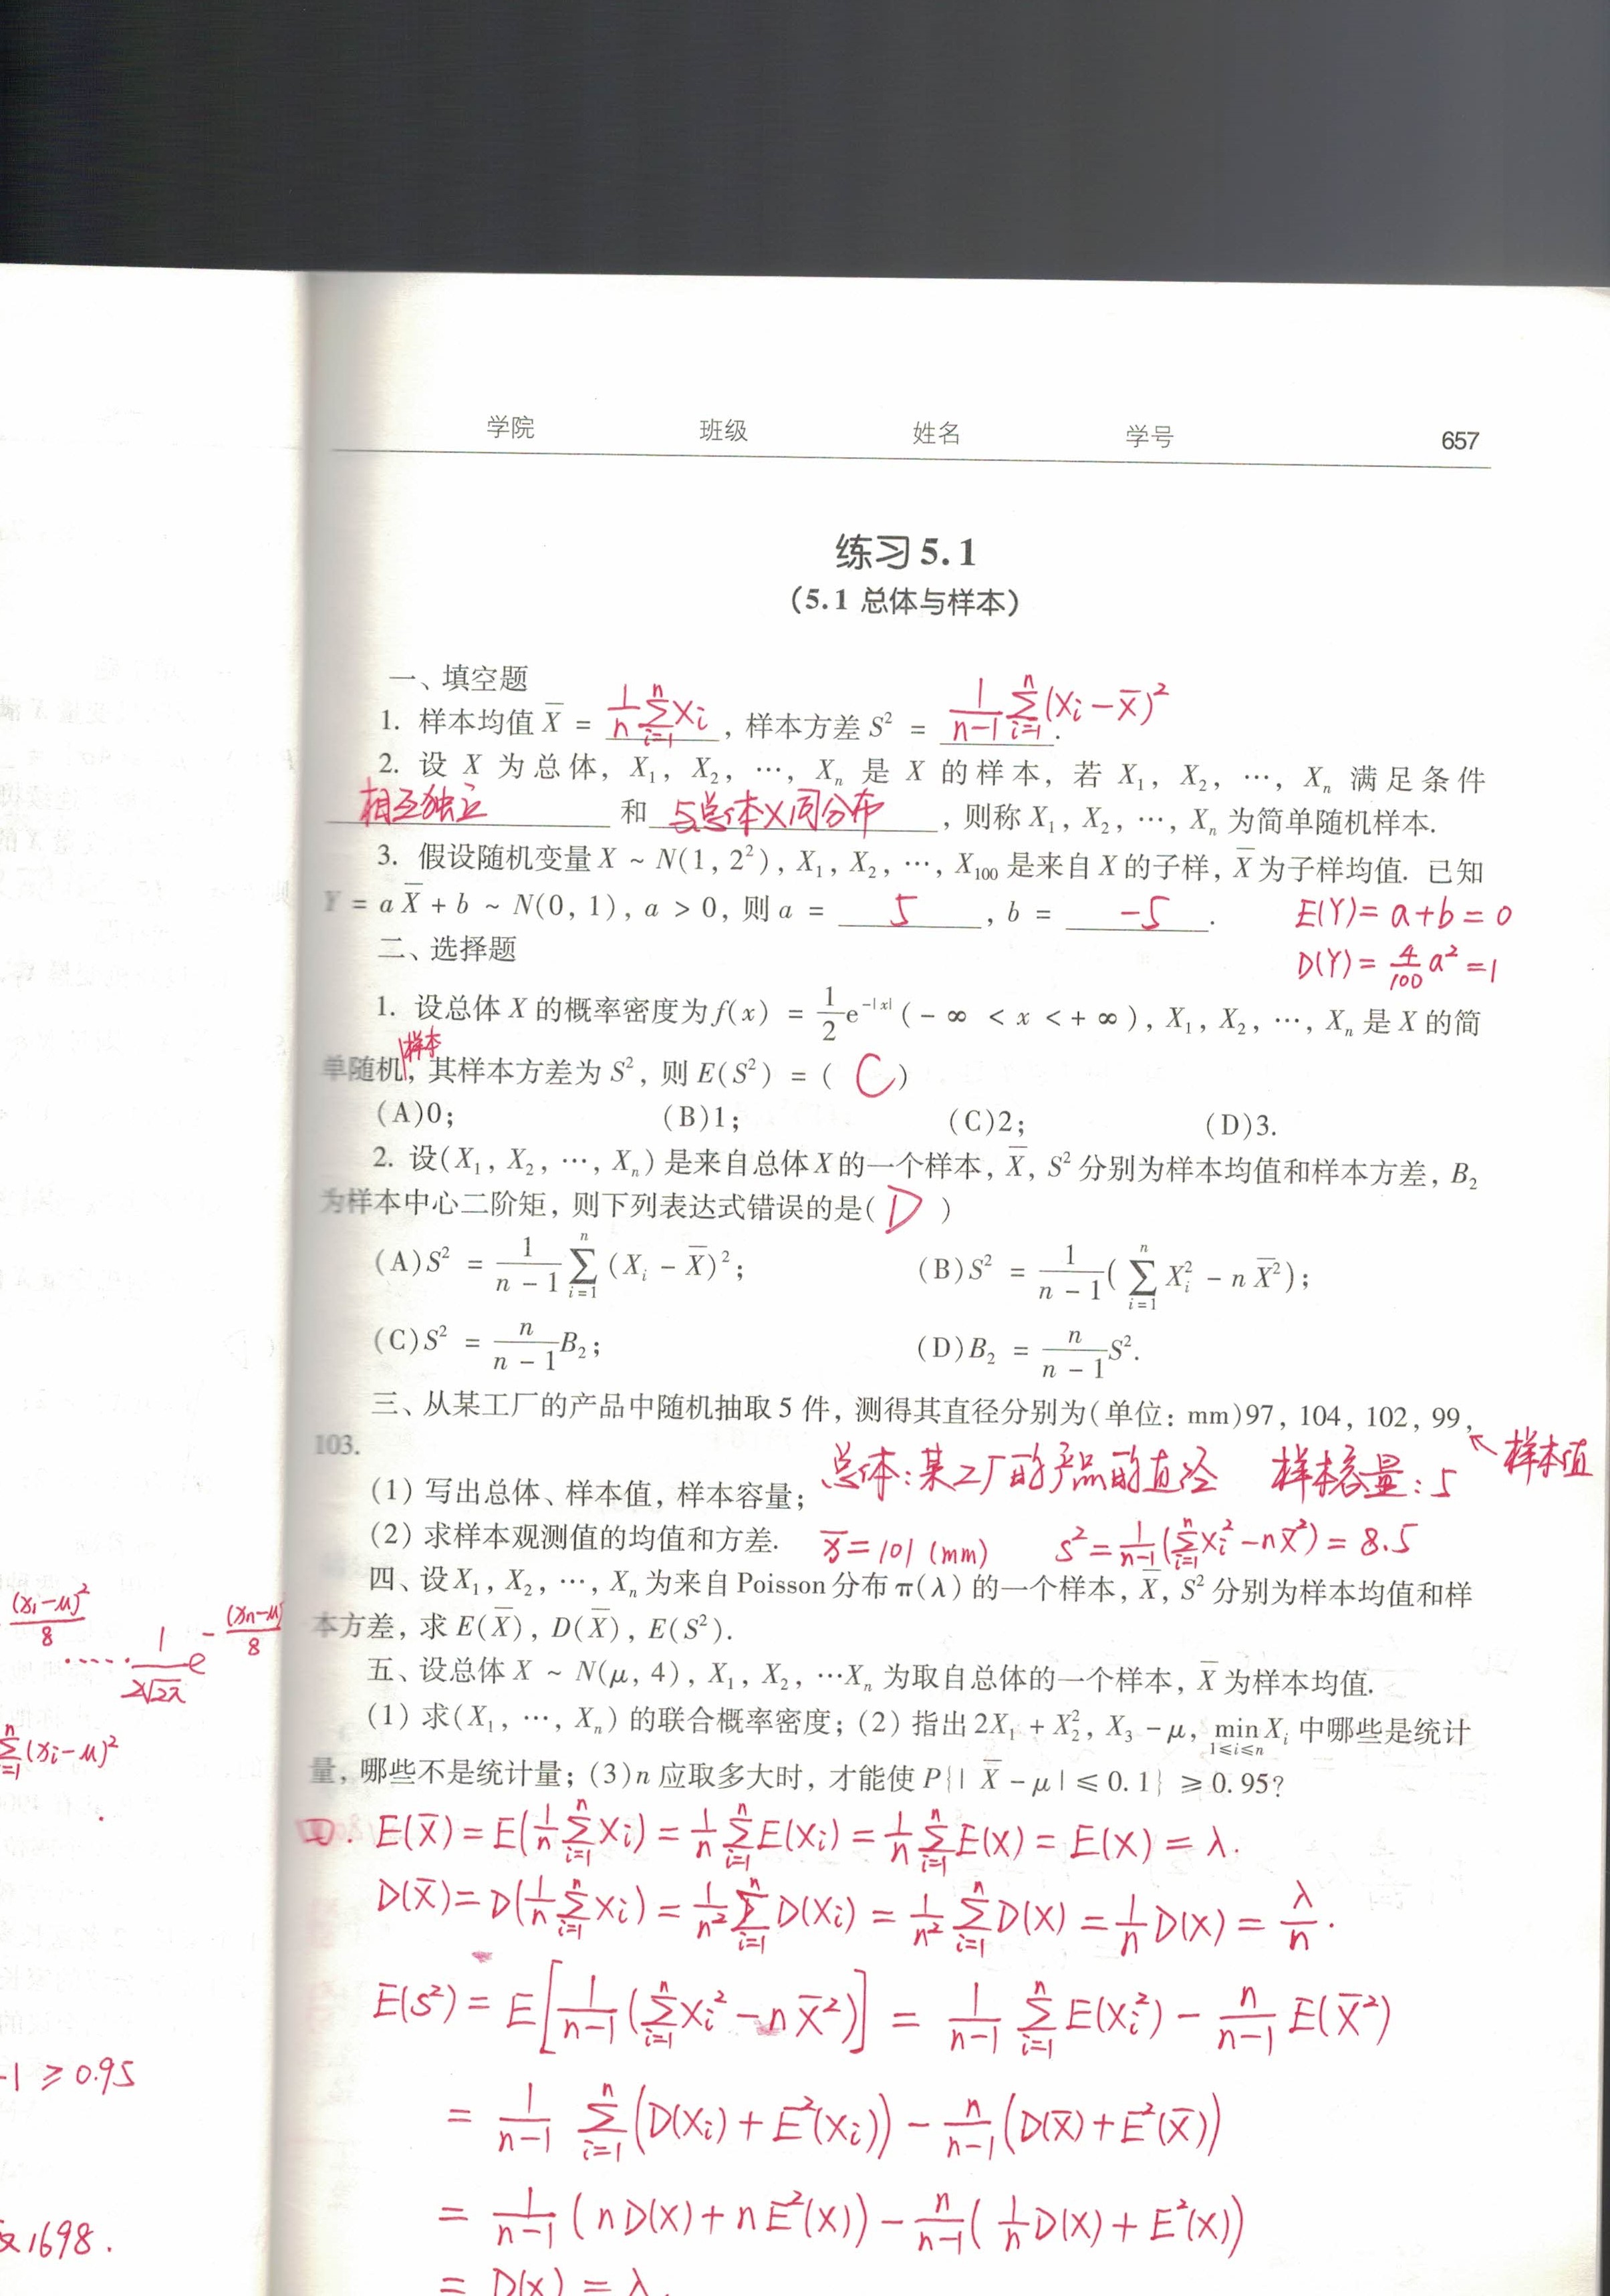 学院 班级 姓名 学号 657
练习5.1
(5.1 总体与样本)
一、填空题
1. 样本均值 X̄ = 1/n ∑_{i=1}^{n} Xi , 样本方差 S² = 1/(n-1) ∑_{i=1}^{n} (Xi - X̄)² .
2. 设 X 为总体, X₁, X₂, …, Xₙ 是 X 的样本, 若 X₁, X₂, …, Xₙ 满足条件
相互独立 和 与总体X同分布 , 则称 X₁, X₂, …, Xₙ 为简单随机样本.
3. 假设随机变量 X ~ N(1, 2²), X₁, X₂, …, X₁₀₀ 是来自 X 的子样, X̄ 为子样均值. 已知
Y = a X̄ + b ~ N(0, 1), a > 0, 则 a = 5 , b = -5 . E(Y) = a+b = 0
二、选择题 D(Y) = 4/100 a² = 1
1. 设总体 X 的概率密度为 f(x) = 1/2 e^{-|x|} (-∞ < x < +∞), X₁, X₂, …, Xₙ 是 X 的简
样本
单随机, 其样本方差为 S², 则 E(S²) = ( C )
(A)0; (B)1; (C)2; (D)3.
2. 设(X₁, X₂, …, Xₙ)是来自总体X的一个样本, X̄, S² 分别为样本均值和样本方差, B₂
为样本中心二阶矩, 则下列表达式错误的是( D )
(A)S² = 1/(n-1) ∑_{i=1}^{n} (Xᵢ - X̄)²; (B)S² = 1/(n-1) ( ∑_{i=1}^{n} Xᵢ² - n X̄²);
(C)S² = n/(n-1) B₂; (D)B₂ = n/(n-1) S².
三、从某工厂的产品中随机抽取 5 件, 测得其直径分别为(单位: mm)97, 104, 102, 99,
103. ↖ 样本值
(1) 写出总体、样本值, 样本容量; 总体: 某工厂的产品的直径 样本容量: 5
(2) 求样本观测值的均值和方差. x̄ = 101 (mm) s² = 1/(n-1) (∑_{i=1}^{n} xi² - n x̄²) = 8.5
四、设 X₁, X₂, …, Xₙ 为来自 Poisson 分布 π(λ) 的一个样本, X̄, S² 分别为样本均值和样
本方差, 求 E(X̄), D(X̄), E(S²).
五、设总体 X ~ N(μ, 4), X₁, X₂, …Xₙ 为取自总体的一个样本, X̄ 为样本均值.
(1) 求(X₁, …, Xₙ) 的联合概率密度; (2) 指出 2X₁ + X₂², X₃ - μ, min_{1≤i≤n} Xᵢ 中哪些是统计
量, 哪些不是统计量; (3) n 应取多大时, 才能使 P{| X̄ - μ | ≤ 0.1} ≥ 0.95?
四. E(X̄) = E(1/n ∑_{i=1}^{n} Xi) = 1/n ∑_{i=1}^{n} E(Xi) = 1/n ∑_{i=1}^{n} E(X) = E(X) = λ.
D(X̄) = D(1/n ∑_{i=1}^{n} Xi) = 1/n² ∑_{i=1}^{n} D(Xi) = 1/n² ∑_{i=1}^{n} D(X) = 1/n D(X) = λ/n .
E(S²) = E[1/(n-1) (∑_{i=1}^{n} Xi² - n X̄²)] = 1/(n-1) ∑_{i=1}^{n} E(Xi²) - n/(n-1) E(X̄²)
= 1/(n-1) ∑_{i=1}^{n} (D(Xi) + E²(Xi)) - n/(n-1) (D(X̄) + E²(X̄))
= 1/(n-1) (n D(X) + n E²(X)) - n/(n-1) (1/n D(X) + E²(X))
= D(X) = λ.
(x₁-μ)²/8 ····· 1/(2√2π) e^{-(xn-μ)²/8}
∑_{i=1}^{n} (xi-μ)²
-1 ≥ 0.95
1698.